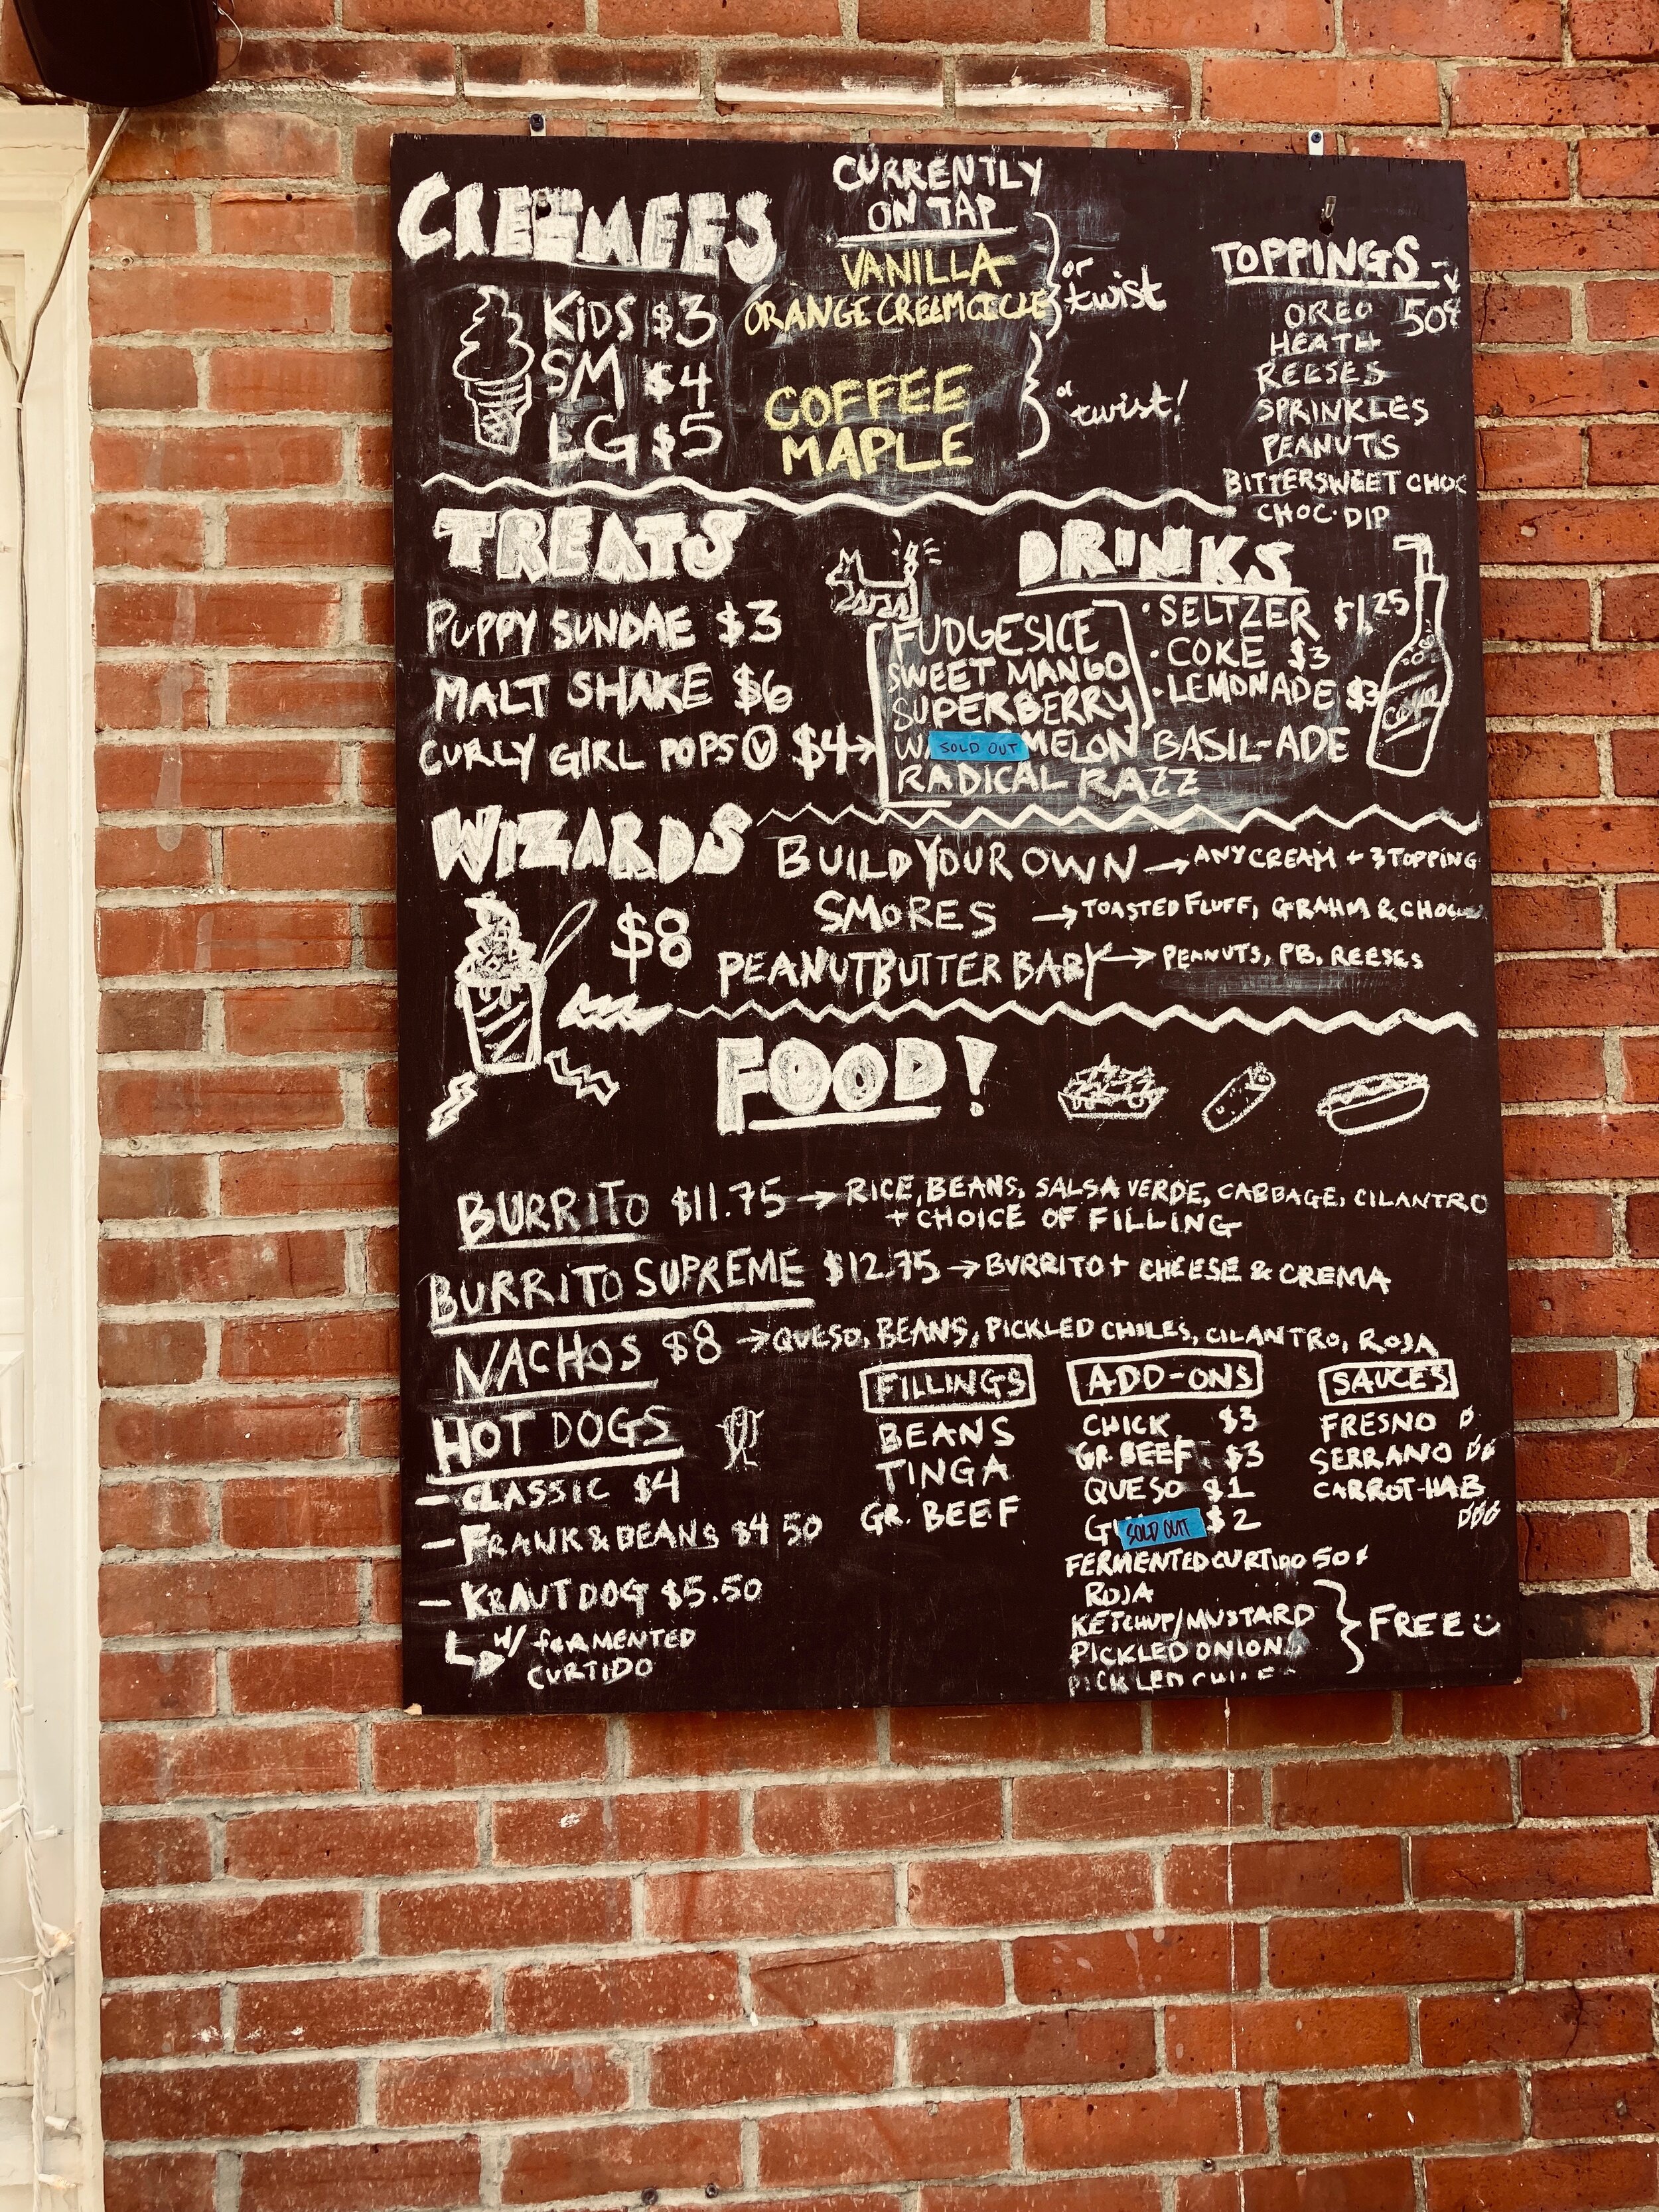 CREEMEES
KIDS $3
SM $4
LG $5
CURRENTLY
ON TAP
VANILLA
ORANGE CREEMCICLE
or
twist
COFFEE
MAPLE
or
twist!
TOPPINGS
OREO 50¢
HEATH
REESES
SPRINKLES
PEANUTS
BITTERSWEET CHOC
CHOC·DIP
TREATS
PUPPY SUNDAE $3
MALT SHAKE $6
CURLY GIRL POPS Ⓥ $4→
FUDGESICE
SWEET MANGO
SUPERBERRY
SOLD OUT MELON BASIL-ADE
RADICAL RAZZ
DRINKS
·SELTZER $1,25
·COKE $3
·LEMONADE $3
WIZARDS
$8
BUILD YOUR OWN → ANY CREAM + 3 TOPPING
SMORES → TOASTED FLUFF, GRAHM & CHOC
PEANUTBUTTER BABY → PEANUTS, PB, REESES
FOOD!
BURRITO $11.75 → RICE, BEANS, SALSA VERDE, CABBAGE, CILANTRO
+ CHOICE OF FILLING
BURRITO SUPREME $12.75 → BURRITO + CHEESE & CREMA
NACHOS $8 → QUESO, BEANS, PICKLED CHILES, CILANTRO, ROJA
HOT DOGS
- CLASSIC $4
- FRANK & BEANS $4 50
- KRAUT DOG $5.50
w/ FERMENTED
CURTIDO
FILLINGS
BEANS
TINGA
GR. BEEF
ADD-ONS
CHICK $3
GR. BEEF $3
QUESO $1
SOLD OUT $2
FERMENTED CURTIDO 50¢
ROJA
KETCHUP/MUSTARD
PICKLED ONION
PICKLED CHILE
FREE
SAUCES
FRESNO
SERRANO
CARROT-HAB